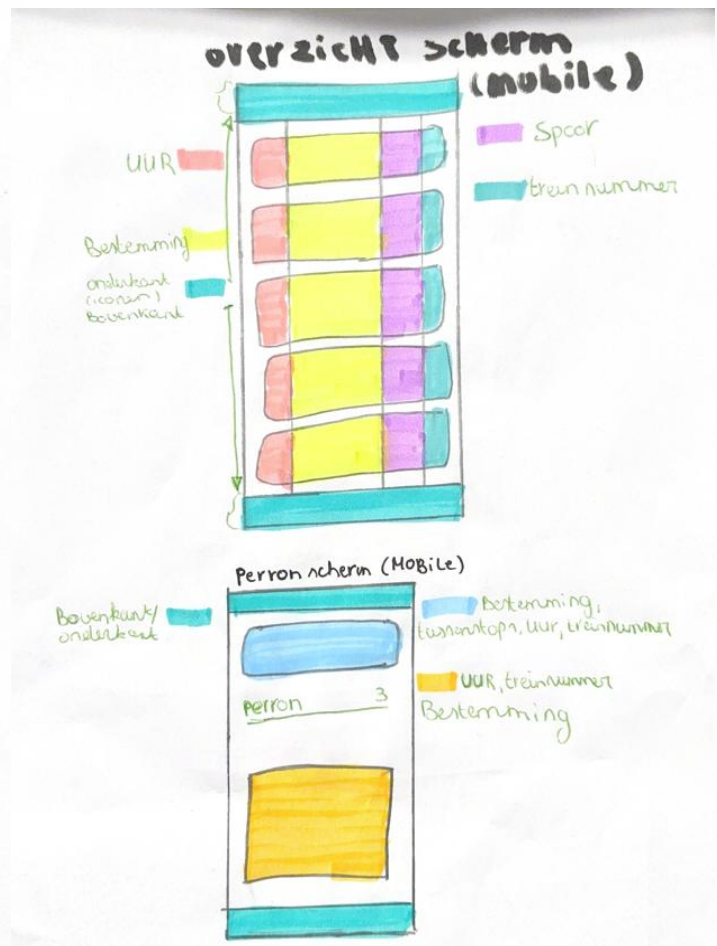 overzicht scherm
(mobile)
UUR
Spoor
trein nummer
Bestemming
onderkant
(iconen)
Bovenkant
Perron scherm (MOBiLe)
Bovenkant/
onderkant
Bestemming,
tussenstops, uur, treinnummer
UUR, treinnummer
Bestemming
perron 3